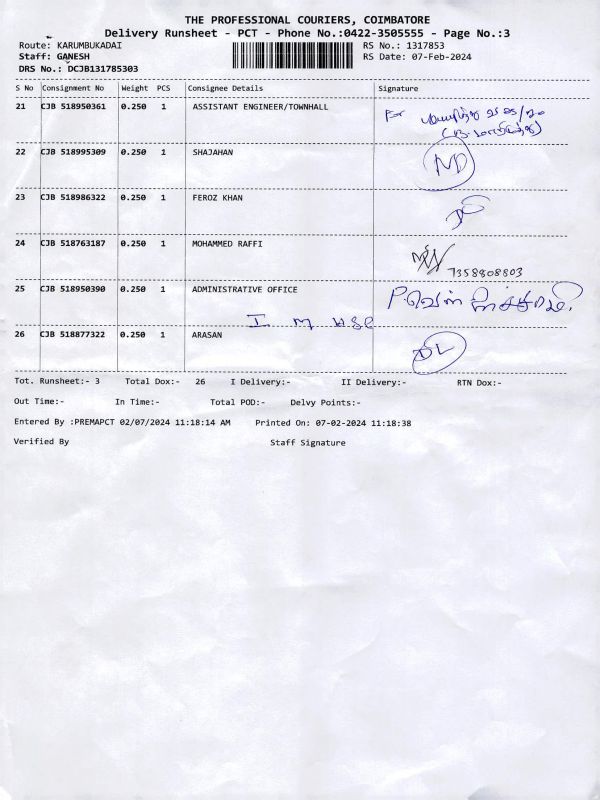 THE PROFESSIONAL COURIERS, COIMBATORE
Delivery Runsheet - PCT - Phone No.:0422-3505555 - Page No.:3
Route: KARUMBUKADAI RS No.: 1317853
Staff: GANESH RS Date: 07-Feb-2024
DRS No.: DCJB131785303
S No Consignment No Weight PCS Consignee Details Signature
21 CJB 518950361 0.250 1 ASSISTANT ENGINEER/TOWNHALL
22 CJB 518995309 0.250 1 SHAJAHAN
23 CJB 518986322 0.250 1 FEROZ KHAN
24 CJB 518763187 0.250 1 MOHAMMED RAFFI
7358808803
25 CJB 518950390 0.250 1 ADMINISTRATIVE OFFICE
26 CJB 518877322 0.250 1 ARASAN
Tot. Runsheet:- 3 Total Dox:- 26 I Delivery:- II Delivery:- RTN Dox:-
Out Time:- In Time:- Total POD:- Delvy Points:-
Entered By :PREMAPCT 02/07/2024 11:18:14 AM Printed On: 07-02-2024 11:18:38
Verified By Staff Signature